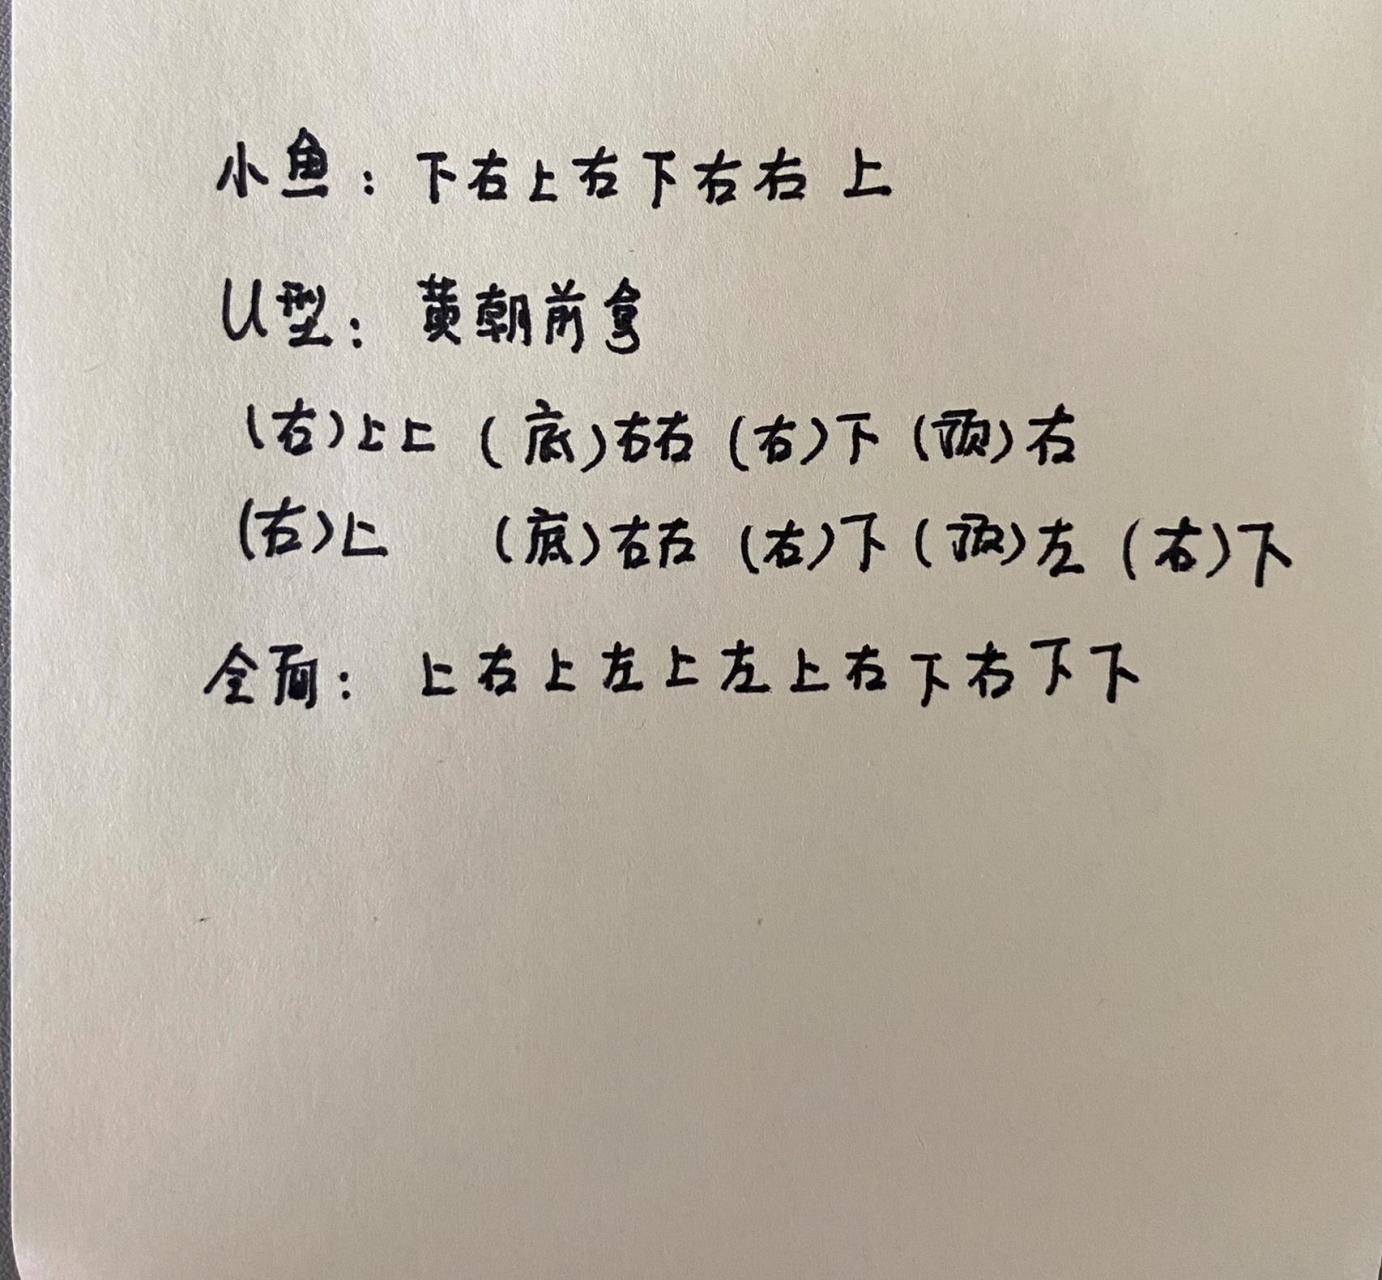 小鱼：下右上右下右右上
U型：黄朝前拿
(右)上上 (底)右右 (右)下 (顶)右
(右)上 (底)右右 (右)下 (顶)左 (右)下
全面：上右上左上左上右下右下下